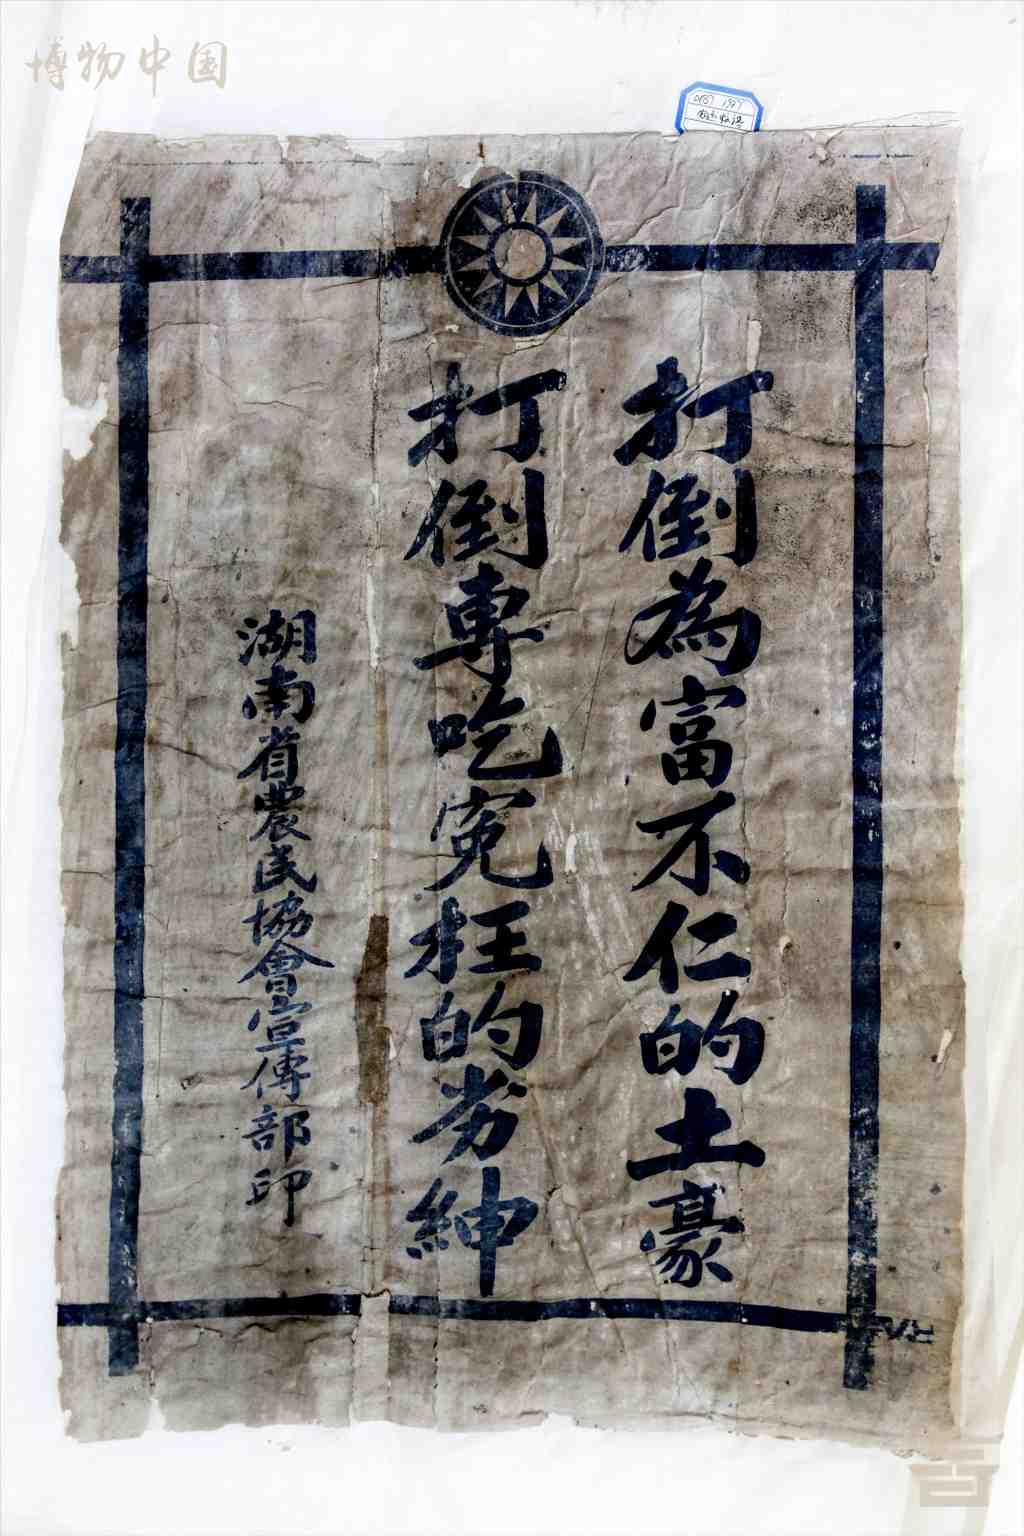 博物中国
打倒為富不仁的土豪
打倒專吃冤枉的劣紳
湖南省農民協會宣傳部印